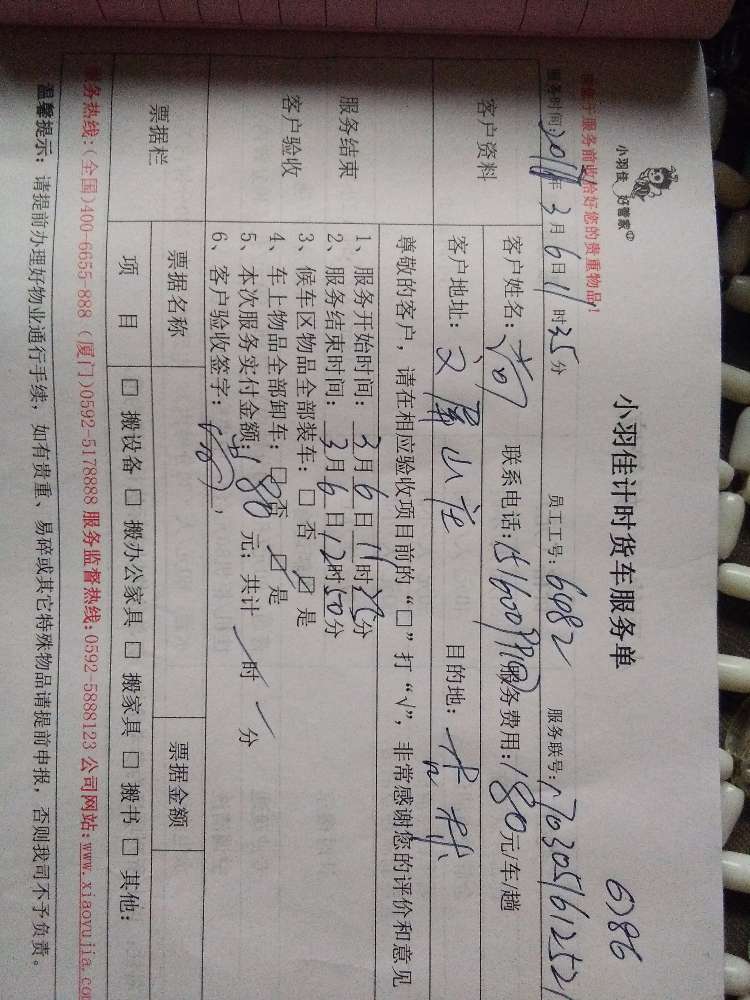 小羽佳 好管家
小羽佳计时货车服务单
6)86
服务前收拾好您的贵重物品！
服务时间: 年3月6日11时35分 员工工号: 6482 服务联号: 170305161252
客户资料
客户姓名: 联系电话: 服务费用: 180元/车/趟
客户地址: 文屏山庄 目的地:
尊敬的客户，请在相应验收项目前的“□”打“√”，非常感谢您的评价和意见
服务结束
客户验收
1、服务开始时间: 3月6日11时 分
2、服务结束时间: 3月6日12时50分
3、候车区物品全部装车: □ 否 ☑ 是
4、车上物品全部卸车: □ 否 ☑ 是
5、本次服务实付金额: 180 元; 共计 / 时 / 分
6、客户验收签字:
票据栏
票据名称 票据金额
项 目 □ 搬设备 □ 搬办公家具 □ 搬家具 □ 搬书 □ 其他:
服务热线:(全国)400-6655-888 (厦门)0592-5178888 服务监督热线:0592-5888123 公司网站:www.xiaoyujia.co
温馨提示: 请提前办理好物业通行手续，如有贵重、易碎或其它特殊物品请提前申报，否则我司不予负责。